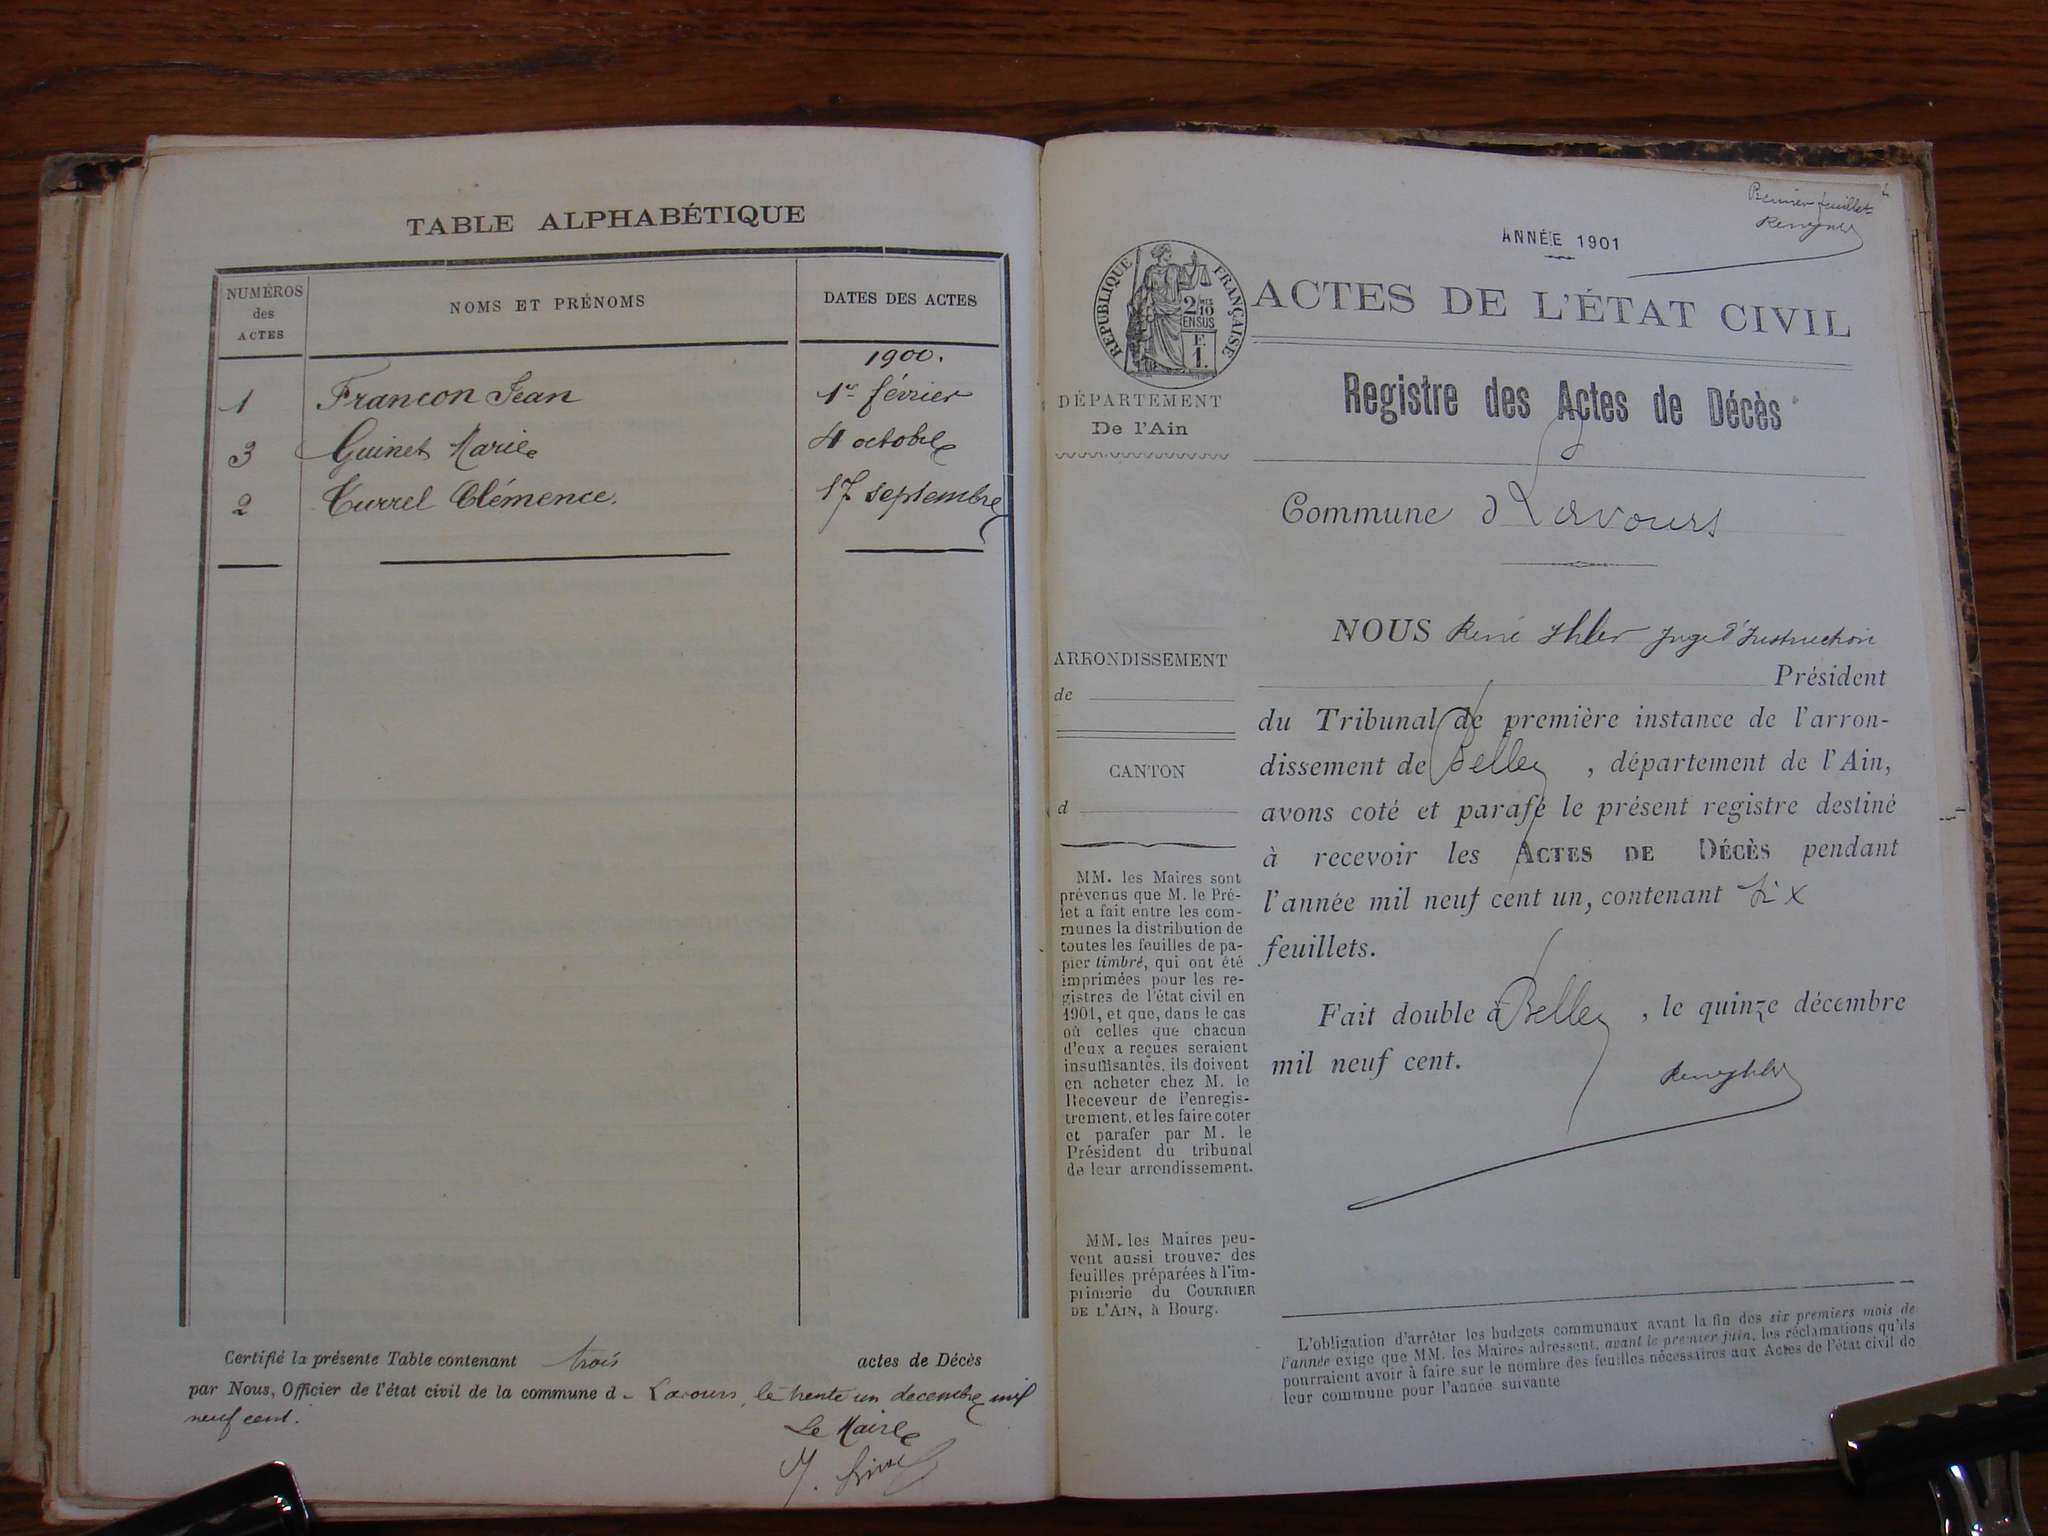 TABLE ALPHABÉTIQUE
NUMÉROS
des
ACTES
NOMS ET PRÉNOMS
DATES DES ACTES
1900.
1 Francon Jean 1er février
3 Guinet Marie 4 octobre
2 Turrel Clémence. 17 septembre
Certifié la présente Table contenant trois actes de Décès
par Nous, Officier de l'état civil de la commune d - Lavours, le trente un decembre mil
neuf cent.
Le Maire
Premier feuillet
ANNÉE 1901
RÉPUBLIQUE FRANÇAISE
2/10
EN SUS
F.
1.
ACTES DE L'ÉTAT CIVIL
DÉPARTEMENT
De l'Ain
Registre des Actes de Décès
Commune d Lavours
ARRONDISSEMENT
de
CANTON
d
MM. les Maires sont
prévenus que M. le Pré-
fet a fait entre les com-
munes la distribution de
toutes les feuilles de pa-
pier timbré, qui ont été
imprimées pour les re-
gistres de l'état civil en
1901, et que, dans le cas
où celles que chacun
d'eux a reçues seraient
insuffisantes, ils doivent
en acheter chez M. le
Receveur de l'enregis-
trement, et les faire coter
et parafer par M. le
Président du tribunal
de leur arrondissement.
MM. les Maires peu-
vent aussi trouver des
feuilles préparées à l'im-
primerie du COURRIER
DE L'AIN, à Bourg.
NOUS René Ihler Juge d'Instruction
Président
du Tribunal de première instance de l'arron-
dissement de Belley , département de l'Ain,
avons coté et parafé le présent registre destiné
à recevoir les ACTES DE DÉCÈS pendant
l'année mil neuf cent un, contenant
feuillets.
Fait double à Belley , le quinze décembre
mil neuf cent.
L'obligation d'arrêter les budgets communaux avant la fin des six premiers mois de
l'année exige que MM. les Maires adressent, avant le premier juin, les réclamations qu'ils
pourraient avoir à faire sur le nombre des feuilles nécessaires aux Actes de l'état civil de
leur commune pour l'année suivante